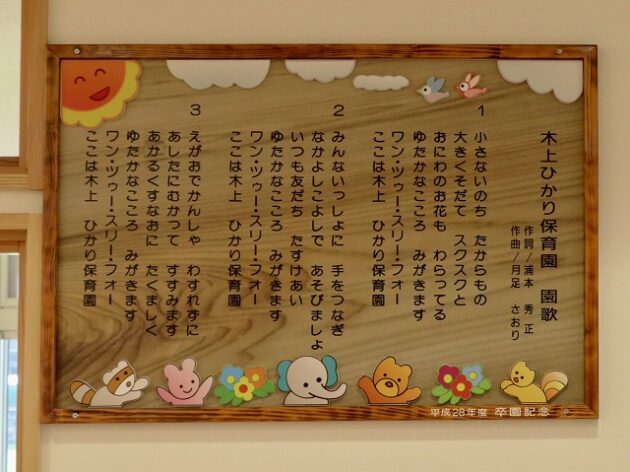 木上ひかり保育園 園歌
作詞/浦本 秀正
作曲/月足 さおり
1
小さないのち たからもの
大きくそだて スクスクと
おにわのお花も わらってる
ゆたかなこころ みがきます
ワン・ツゥー・スリー・フォー
ここは木上 ひかり保育園
2
みんないっしょに 手をつなぎ
なかよしこよしで あそびましょ
いつも友だち たすけあい
ゆたかなこころ みがきます
ワン・ツゥー・スリー・フォー
ここは木上 ひかり保育園
3
えがおでかんしゃ わすれずに
あしたにむかって すすみます
あかるくすなおに たくましく
ゆたかなこころ みがきます
ワン・ツゥー・スリー・フォー
ここは木上 ひかり保育園
平成28年度 卒園記念